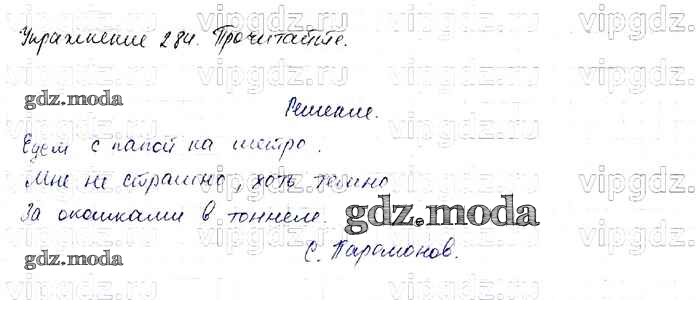 Упражнение 284. Прочитайте.
Решение.
Едем с папой на метро.
Мне не страшно, хоть темно
За окошками в тоннеле.
С. Парамонов.
vipgdz.ru
gdz.moda
gdz.moda
gdz.moda